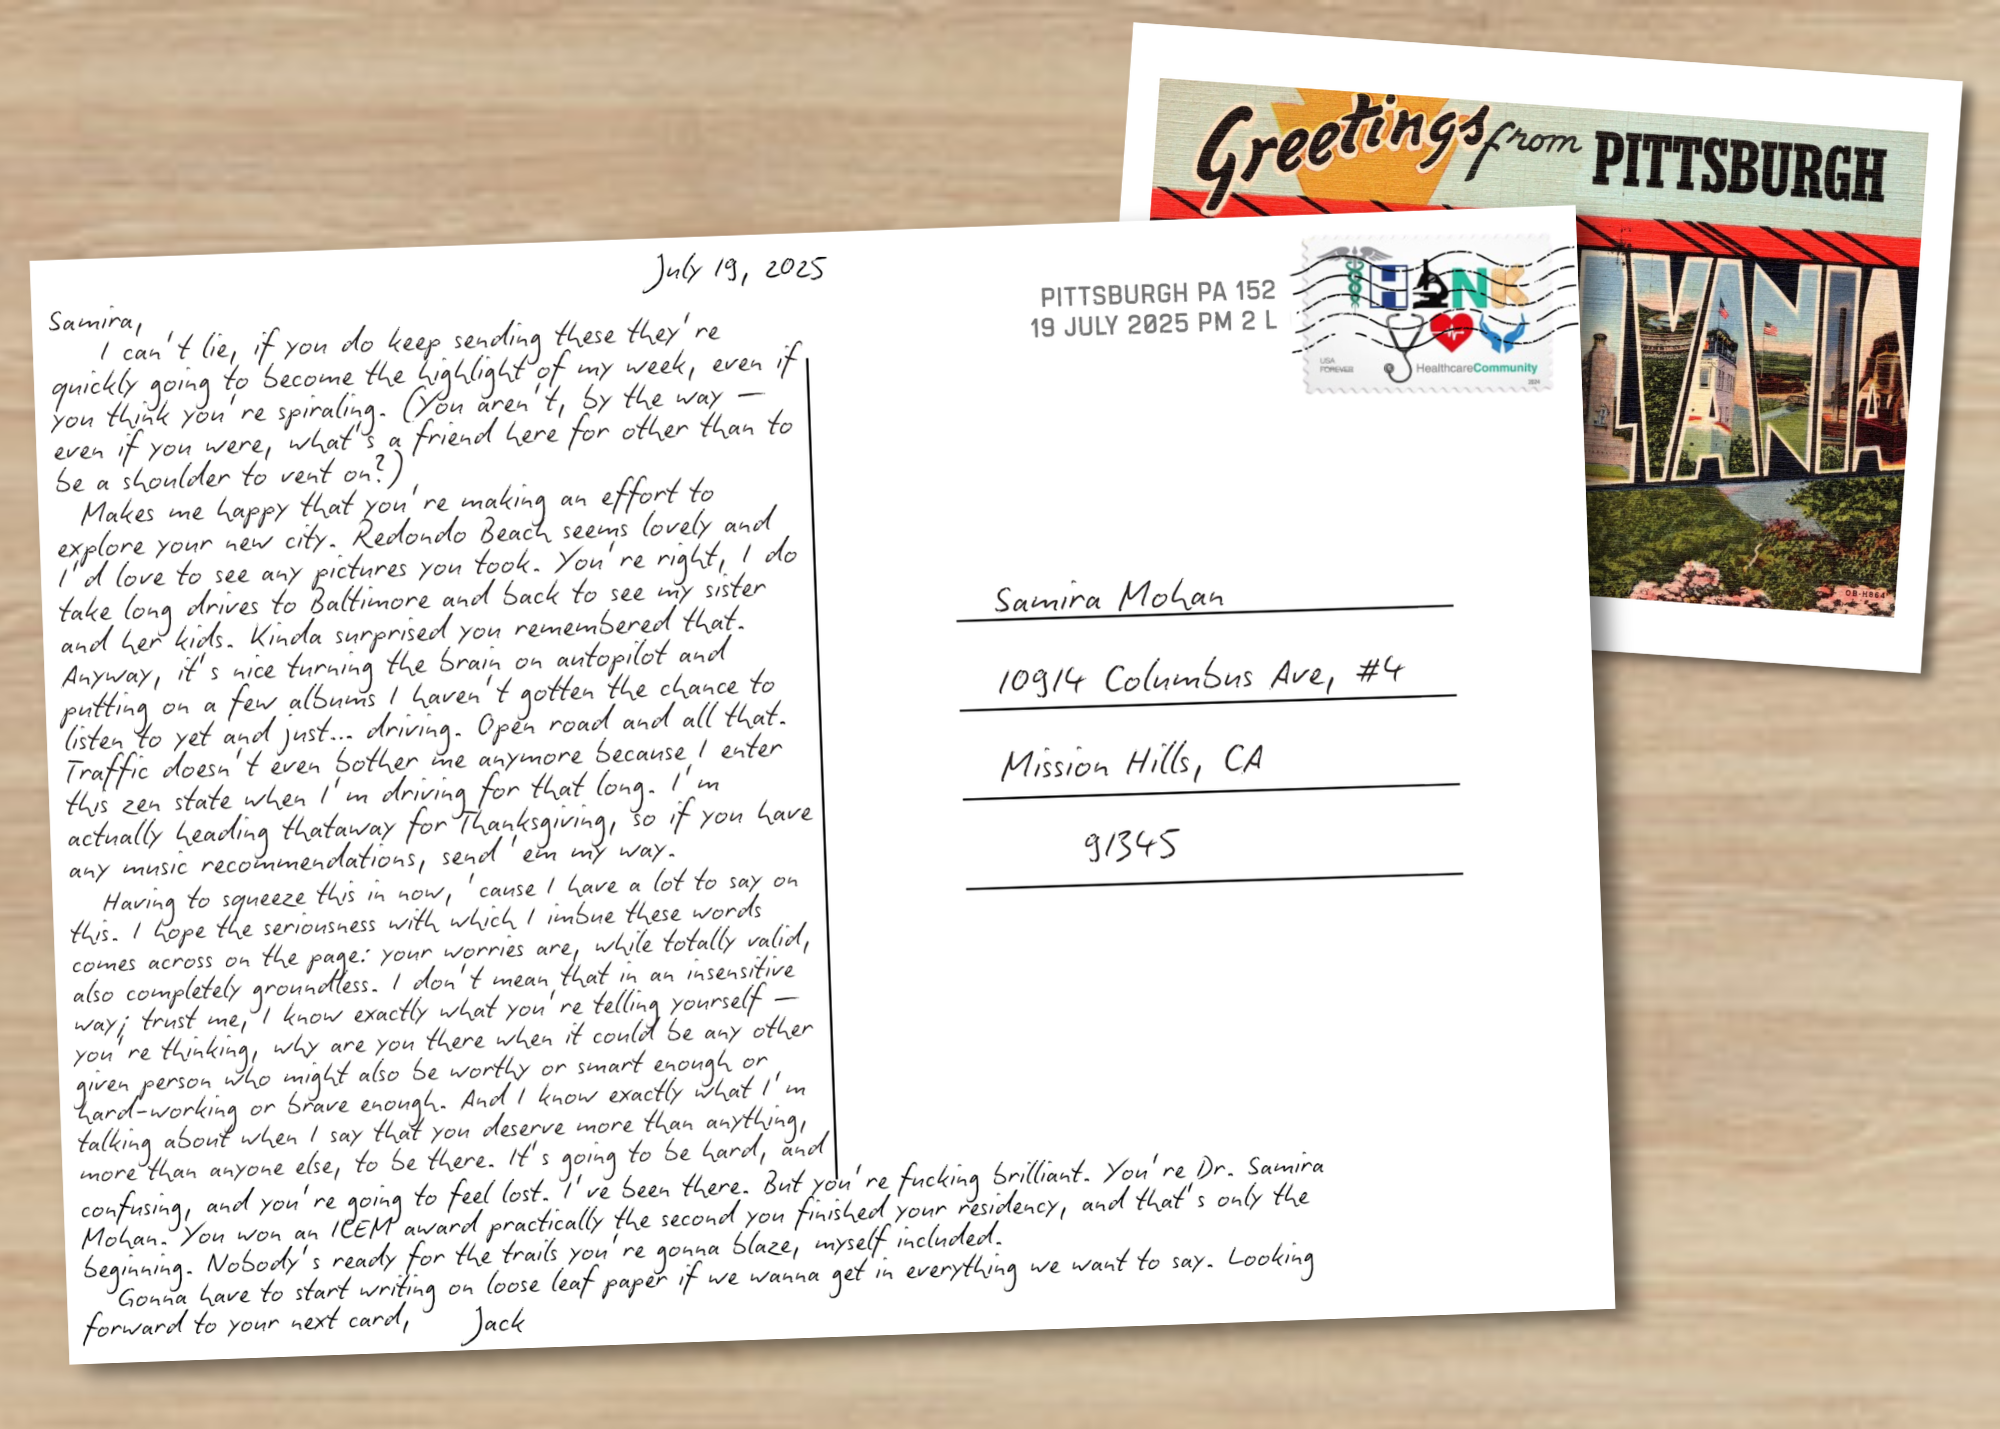 Greetings from PITTSBURGH
LVANIA
OB-H864
July 19, 2025
PITTSBURGH PA 152
19 JULY 2025 PM 2 L
THANK
USA
FOREVER
HealthcareCommunity
2024
Samira,
I can't lie, if you do keep sending these they're
quickly going to become the highlight of my week, even if
you think you're spiraling. (You aren't, by the way —
even if you were, what's a friend here for other than to
be a shoulder to vent on?)
Makes me happy that you're making an effort to
explore your new city. Redondo Beach seems lovely and
I'd love to see any pictures you took. You're right, I do
take long drives to Baltimore and back to see my sister
and her kids. Kinda surprised you remembered that.
Anyway, it's nice turning the brain on autopilot and
putting on a few albums I haven't gotten the chance to
listen to yet and just... driving. Open road and all that.
Traffic doesn't even bother me anymore because I enter
this zen state when I'm driving for that long. I'm
actually heading thataway for Thanksgiving, so if you have
any music recommendations, send 'em my way.
Having to squeeze this in now, 'cause I have a lot to say on
this. I hope the seriousness with which I imbue these words
comes across on the page: your worries are, while totally valid,
also completely groundless. I don't mean that in an insensitive
way; trust me, I know exactly what you're telling yourself —
you're thinking, why are you there when it could be any other
given person who might also be worthy or smart enough or
hard-working or brave enough. And I know exactly what I'm
talking about when I say that you deserve more than anything,
more than anyone else, to be there. It's going to be hard, and
confusing, and you're going to feel lost. I've been there. But you're fucking brilliant. You're Dr. Samira
Mohan. You won an ICEM award practically the second you finished your residency, and that's only the
beginning. Nobody's ready for the trails you're gonna blaze, myself included.
Gonna have to start writing on loose leaf paper if we wanna get in everything we want to say. Looking
forward to your next card,
Jack
Samira Mohan
10914 Columbus Ave, #4
Mission Hills, CA
91345